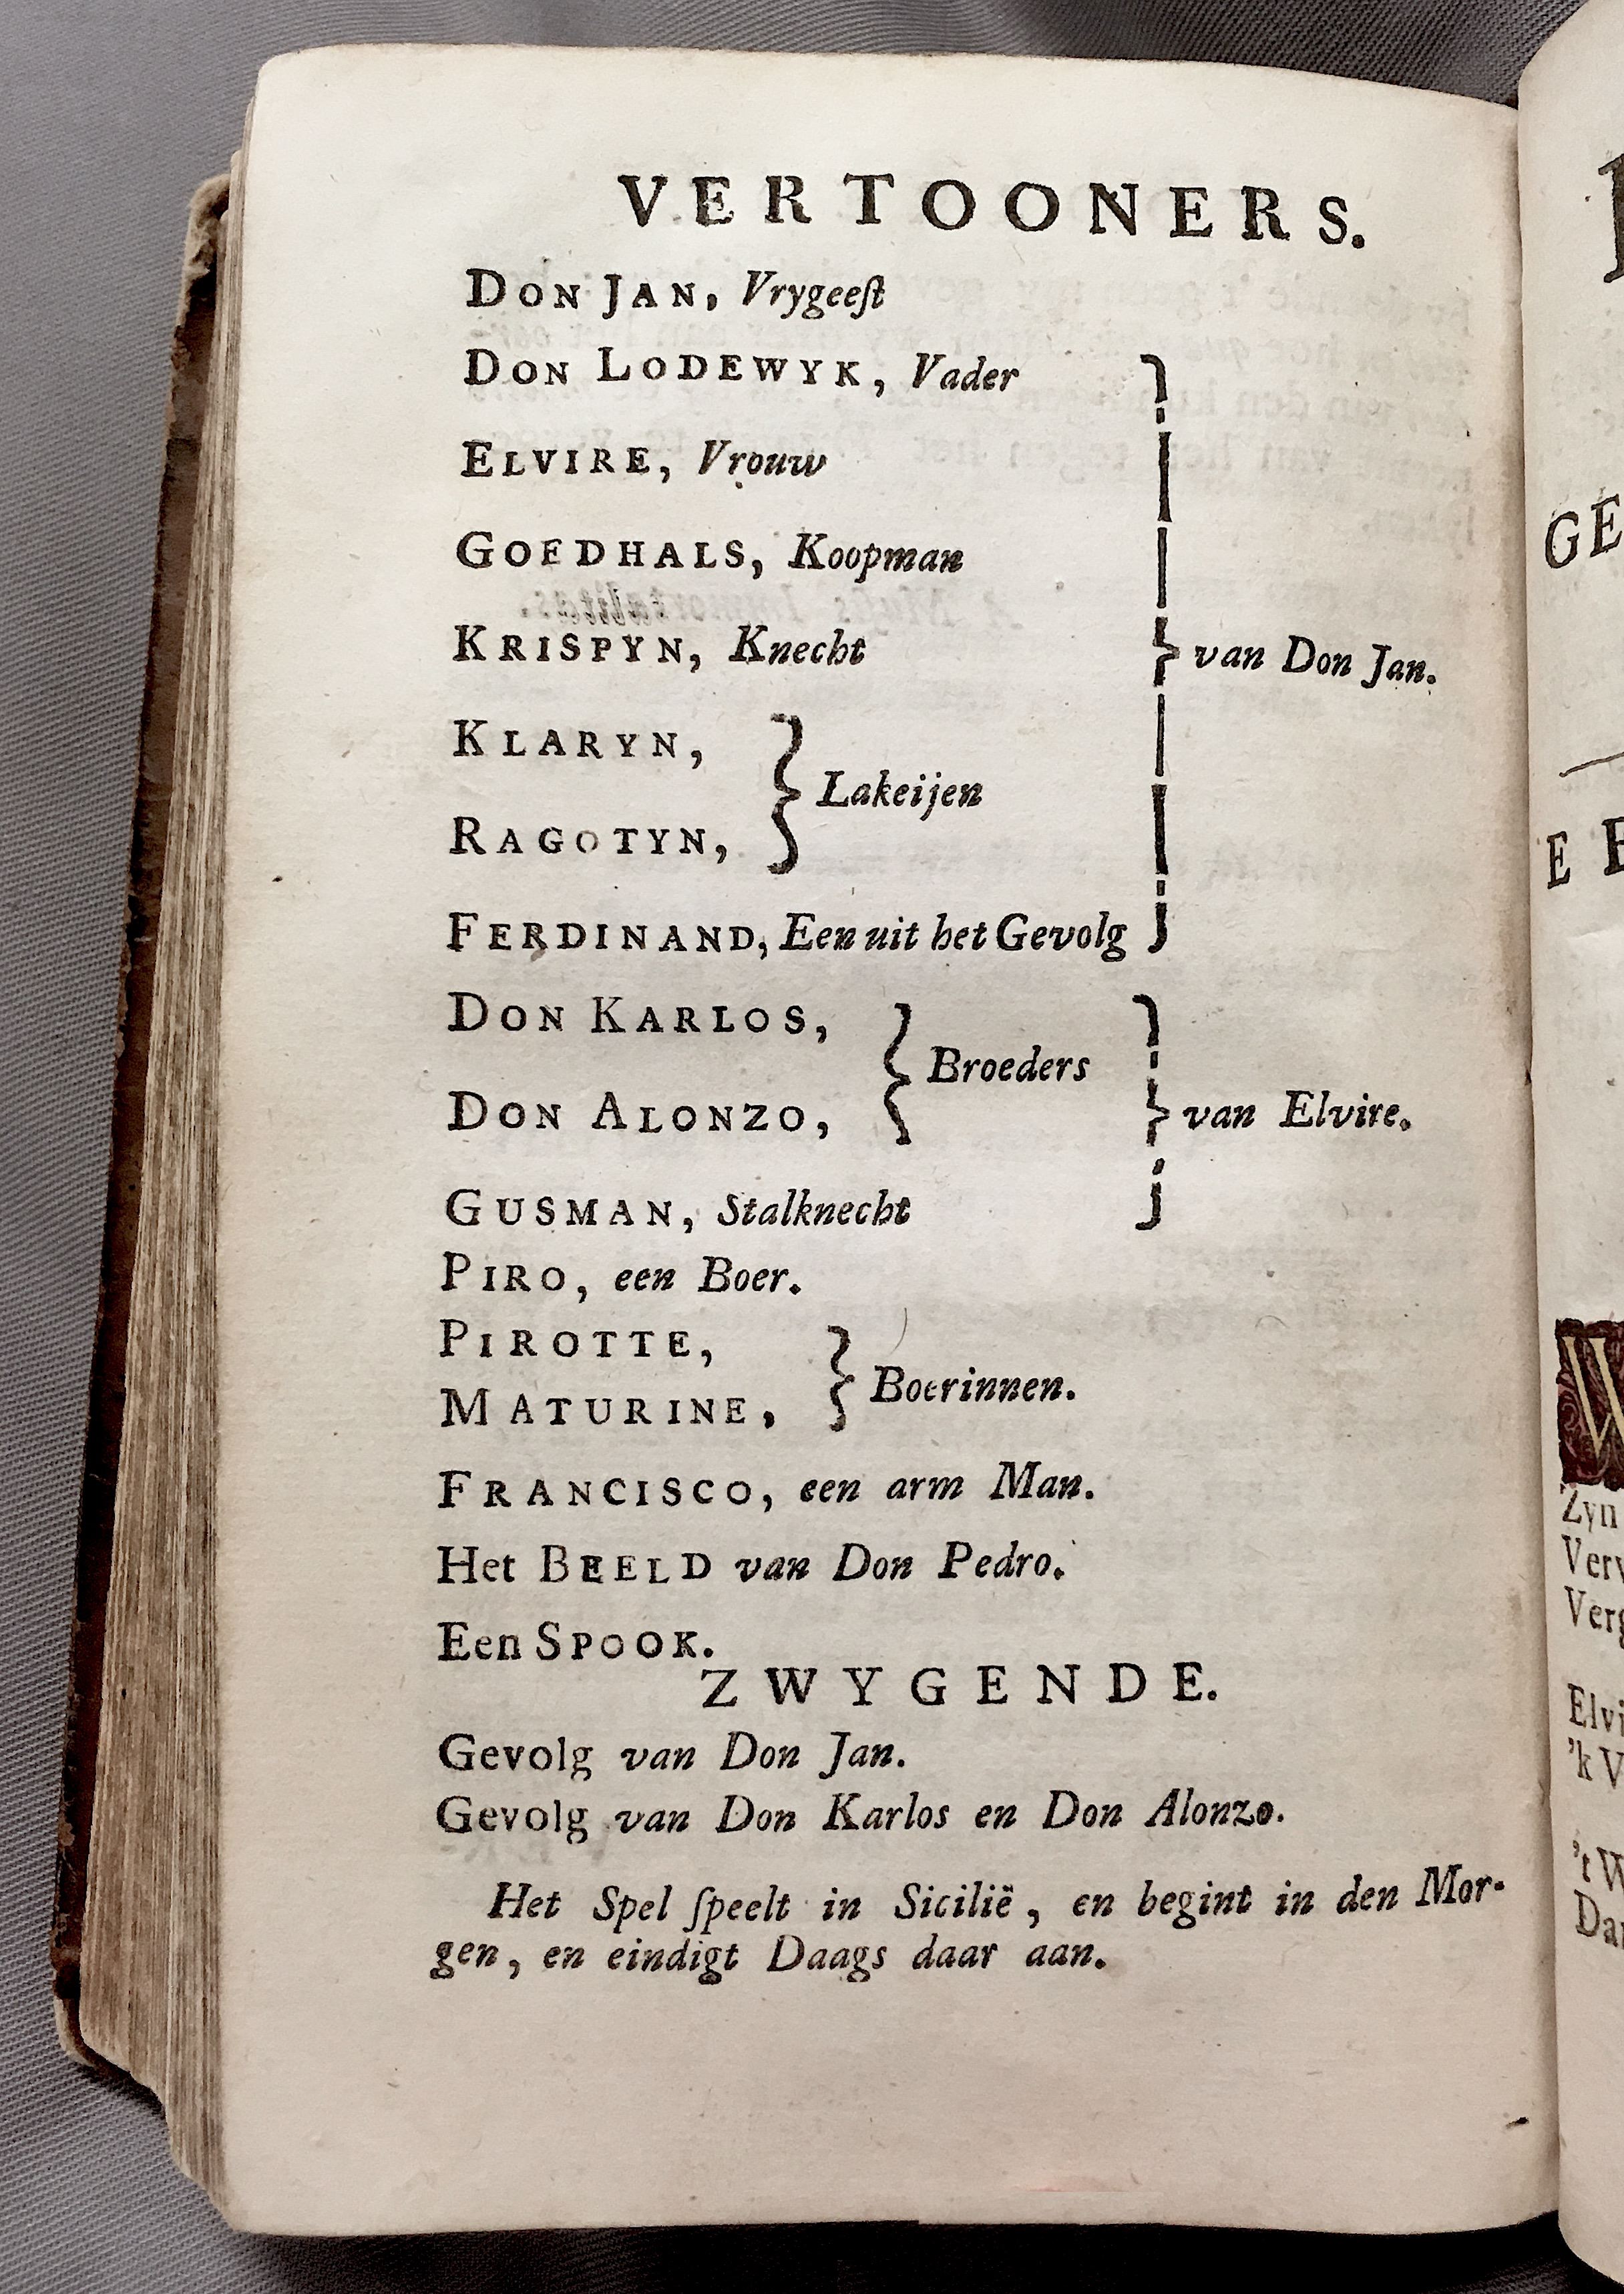 VERTOONERS.
DON JAN, Vrygeeſt
DON LODEWYK, Vader
ELVIRE, Vrouw
GOEDHALS, Koopman
KRISPYN, Knecht
van Don Jan.
KLARYN,
Lakeijen
RAGOTYN,
FERDINAND, Een uit het Gevolg
DON KARLOS,
Broeders
DON ALONZO,
van Elvire.
GUSMAN, Stalknecht
PIRO, een Boer.
PIROTTE,
Boerinnen.
MATURINE,
FRANCISCO, een arm Man.
Het BEELD van Don Pedro.
Een SPOOK.
ZWYGENDE.
Gevolg van Don Jan.
Gevolg van Don Karlos en Don Alonzo.
Het Spel ſpeelt in Sicilië, en begint in den Mor-
gen, en eindigt Daags daar aan.
GE
E
W
Zyn
Verv
Verg
Elvi
'k V
't W
Dar